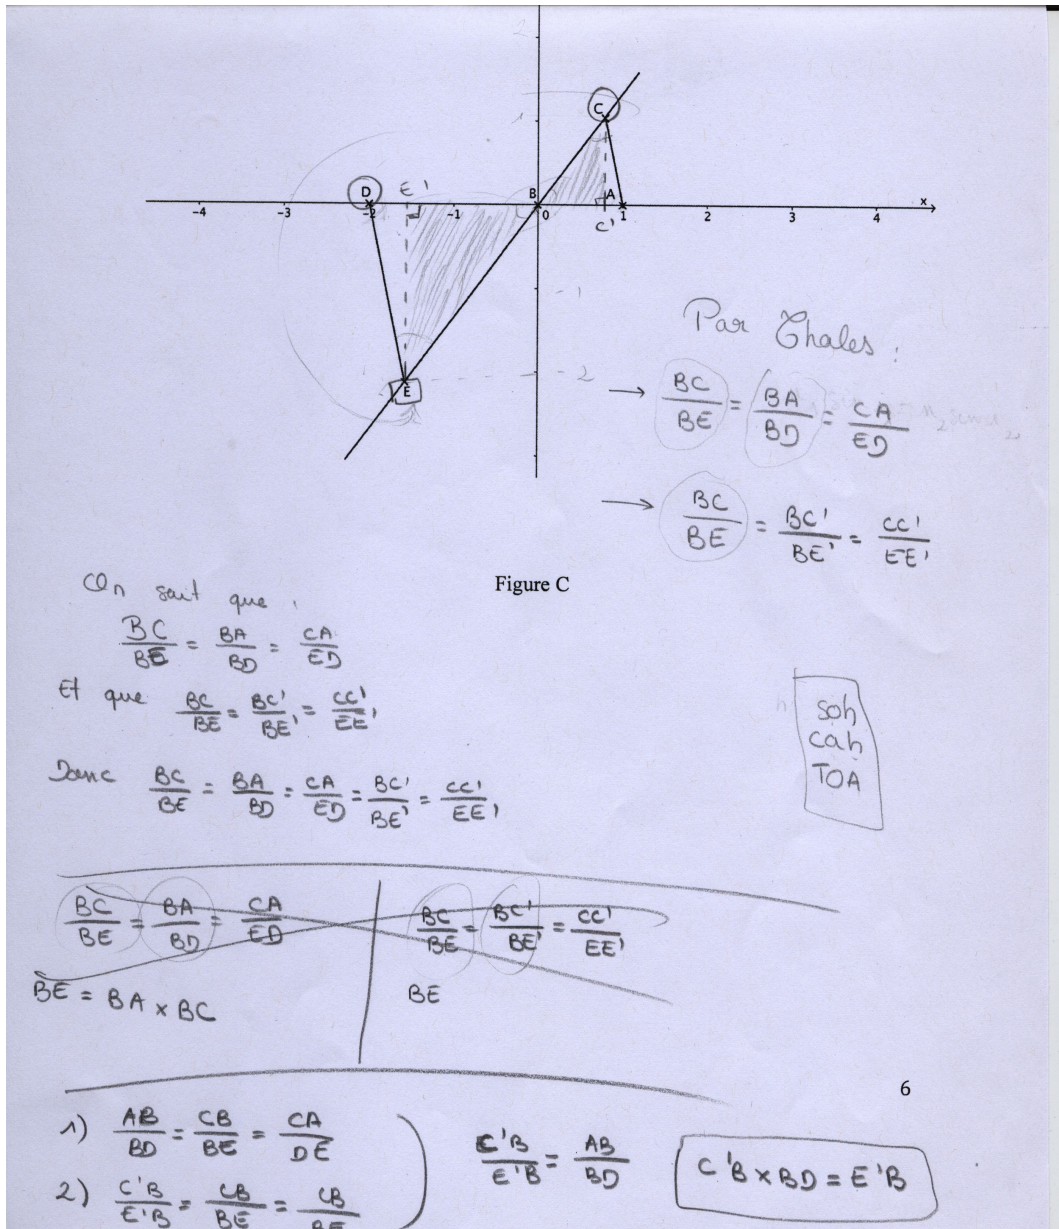 2
1
C
D
E'
B
A
x
-4 -3 -2 -1 0 1 2 3 4
C'
-1
-2
E
Par Thales :
→ BC/BE = BA/BD = CA/ED
→ BC/BE = BC'/BE' = CC'/EE'
Figure C
On sait que :
BC/BE = BA/BD = CA/ED
Et que BC/BE = BC'/BE' = CC'/EE'
soh
cah
TOA
Donc BC/BE = BA/BD = CA/ED = BC'/BE' = CC'/EE'
BC/BE = BA/BD = CA/ED
BE = BA × BC
BC/BE = BC'/BE' = CC'/EE'
BE
6
1) AB/BD = CB/BE = CA/DE
2) C'B/E'B = CB/BE = CB/BE
C'B/E'B = AB/BD
C'B × BD = E'B